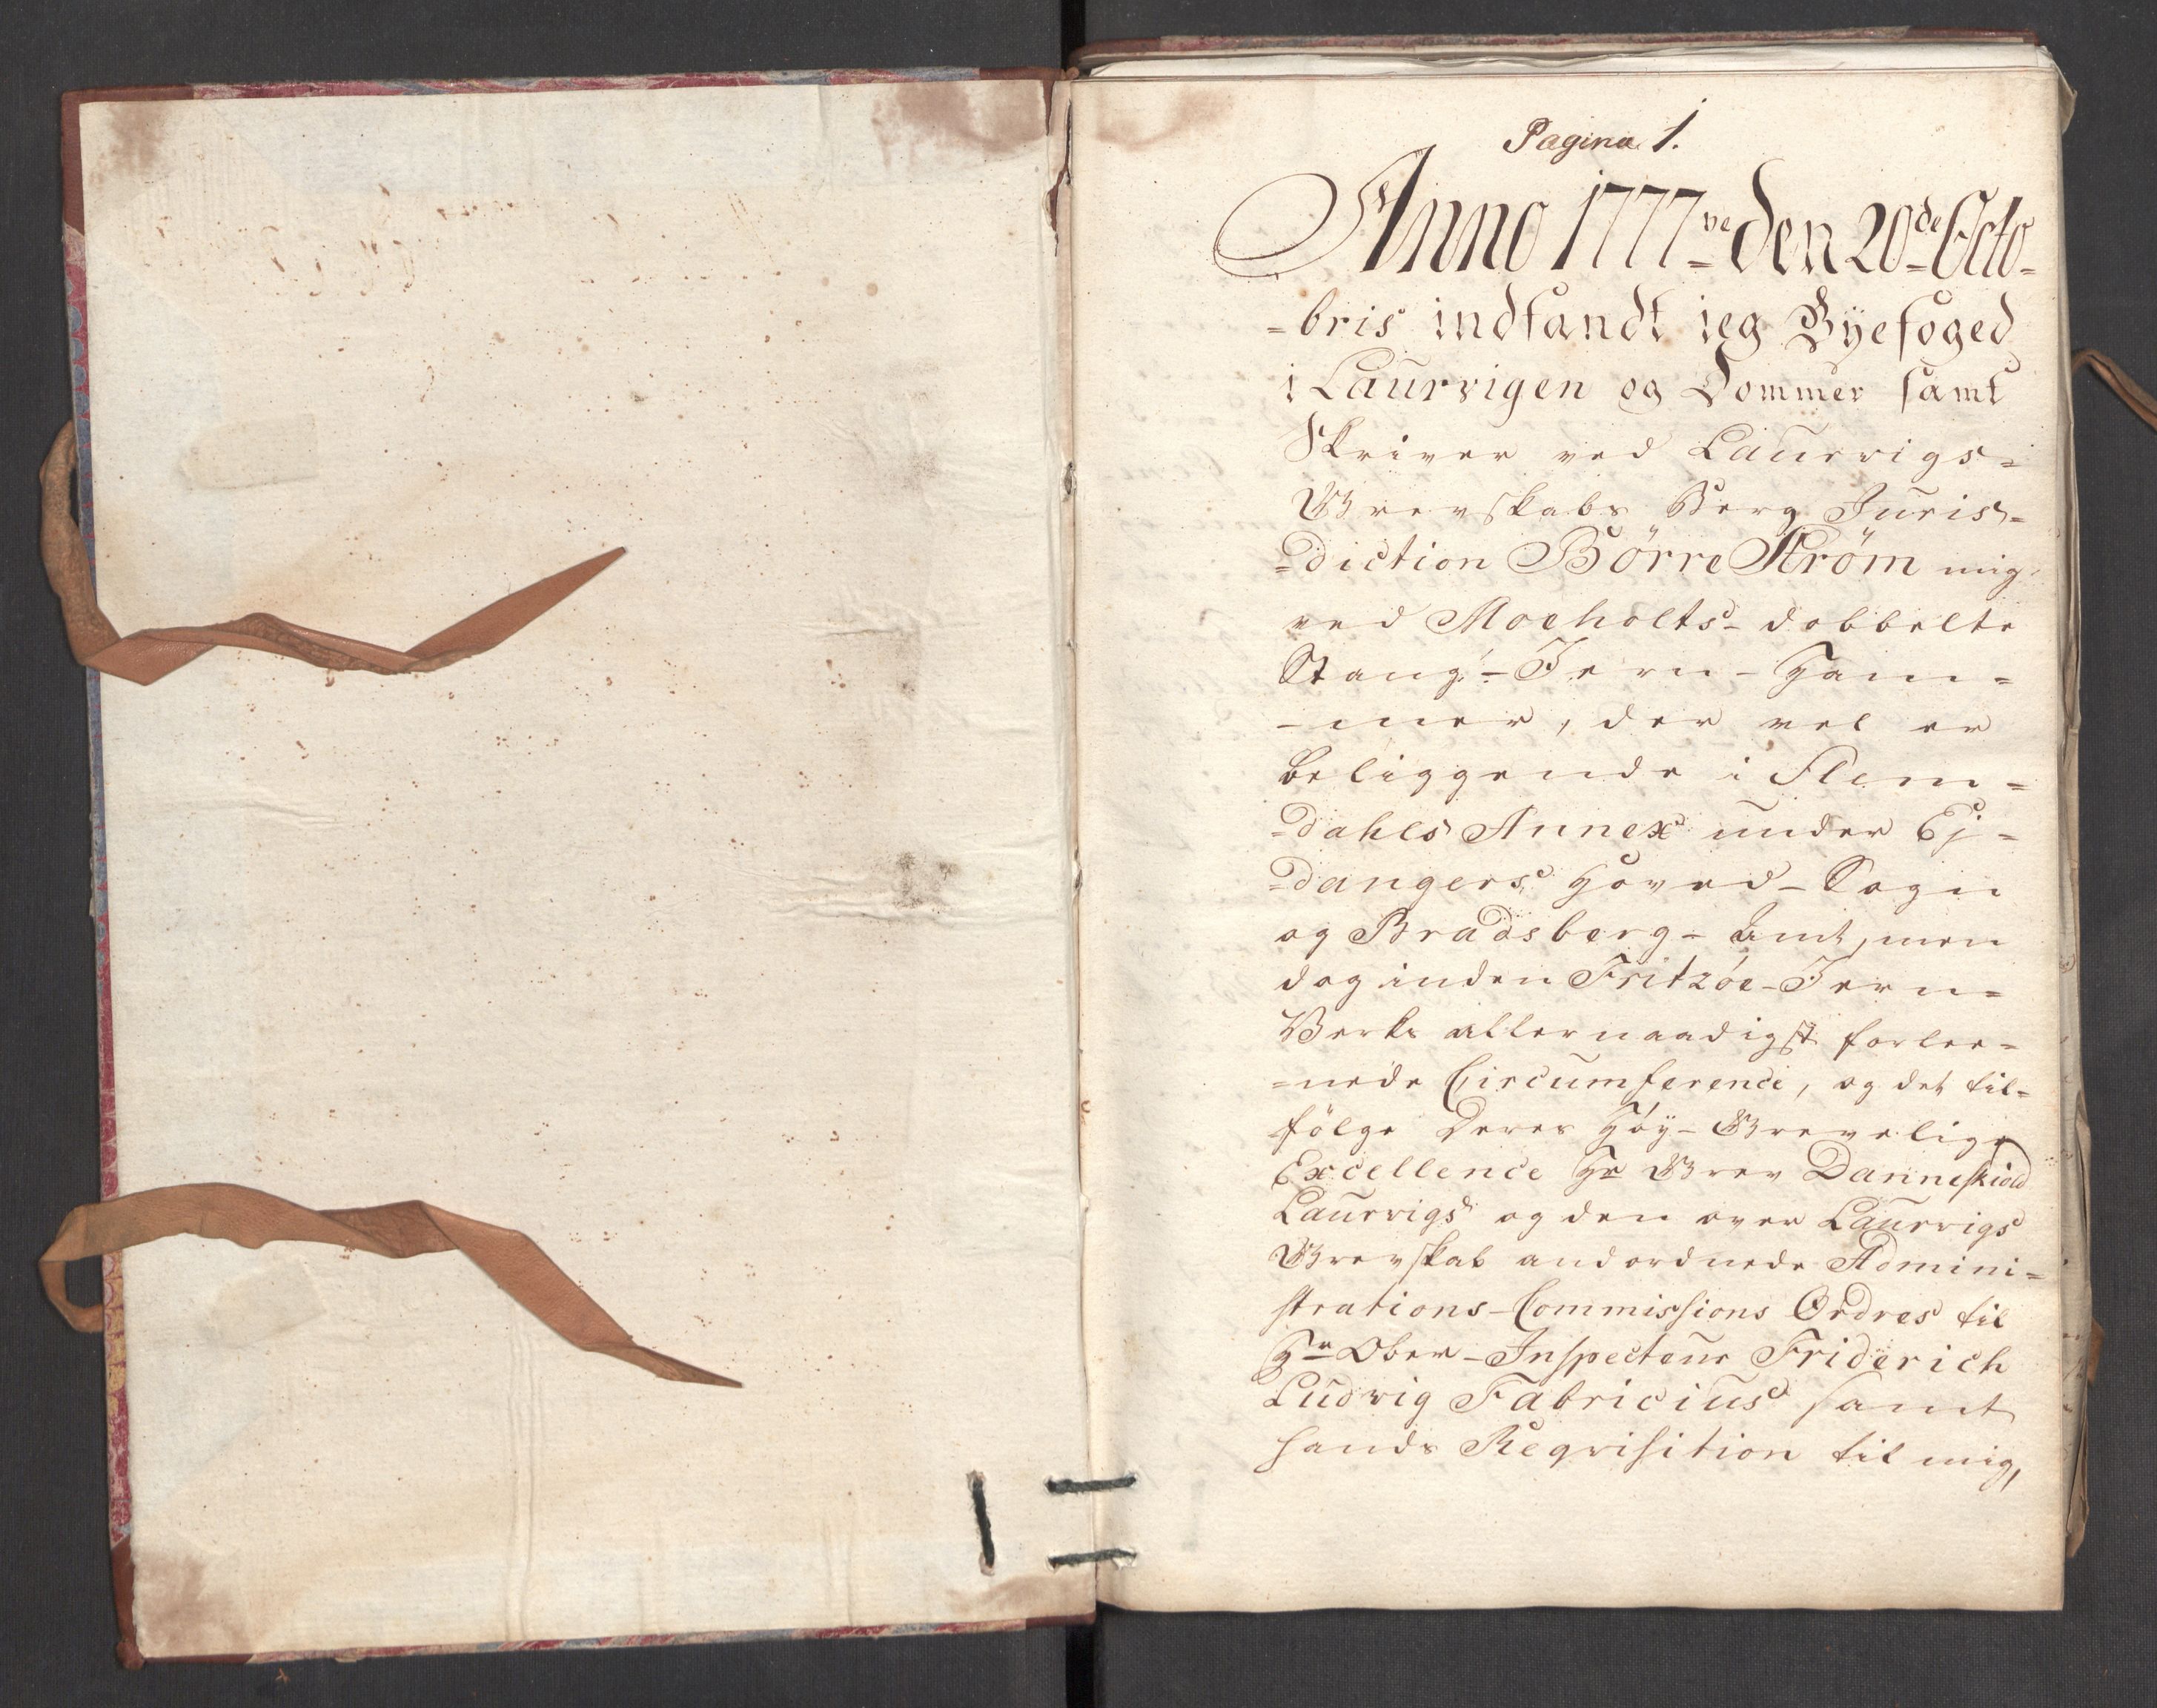 Pagina 1.
Anno 1777ve den 20de Octo=
=bris indfandt ieg Bÿefoged
i Laurvigen og Dommer samt
Skriver ved Laurvigs=
Grevskabs Berg Juris=
=diction Börre Ström mig
ved Moeholts-dobbelte
Stang-Jern-Ham=
=mer, der vel er
beliggende i Slem=
=dahls Annex under Ej=
=dangers Hoved-Sogn
og Bradsberg-Amt, men
dog inden Fritzöe-Jern=
Verks allernaadigst forlee=
=nede Circumference, og det til=
fölge Deres Höÿ-Grevelige
Excellence Hr Grev Danneskiold
Laurvigs og den over Laurvigs
Grevskab andordnede Admini=
strations-Commissions Ordres til
Hr Ober-Inspecteur Friderich
Ludvig Fabricius samt
hands Reqvisition til mig,